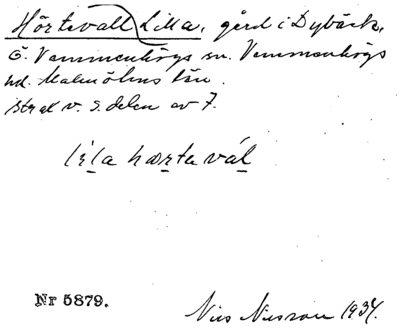 Hörtevall Lilla, gård i Dybäck,
Ö. Vemmenhögs sn. Vemmenhögs
hd. Malmöhus län.
Strax v. s. delen av 7.
lila hœrtavál
Nr 5879.
Nils Nilsson 1934.